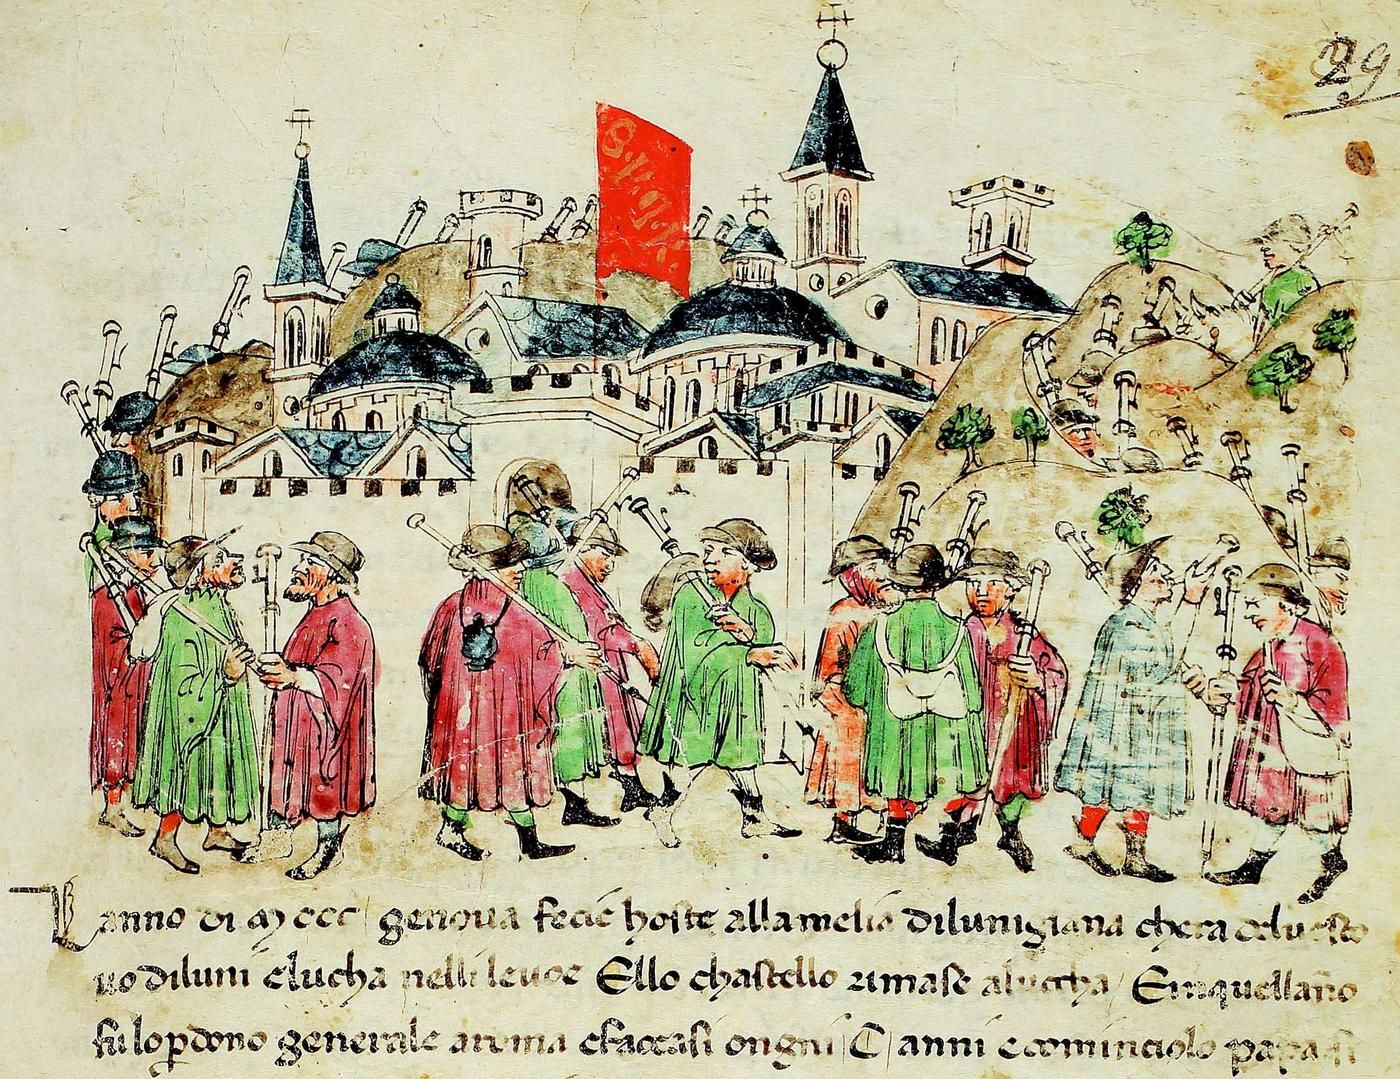 29
S.P.Q.R.
Lanno di MCCC genova fecie hoste alla melia dilunigiana chera delvesco
vo diluni elucha nelli levoe Ello chastello rimase aluccha Einquellano
fu lo perdono generale aroma efaccasi ongni C anni ecominciolo papa